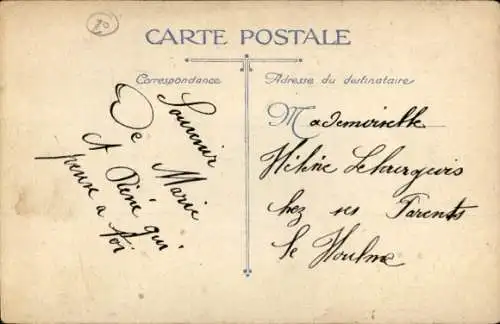 20
CARTE POSTALE
Correspondance
Souvenir
De Marie
et Réné qui
pense a toi
Adresse du destinataire
Mademoiselle
Hélène
chez ses Parents
le Houlme